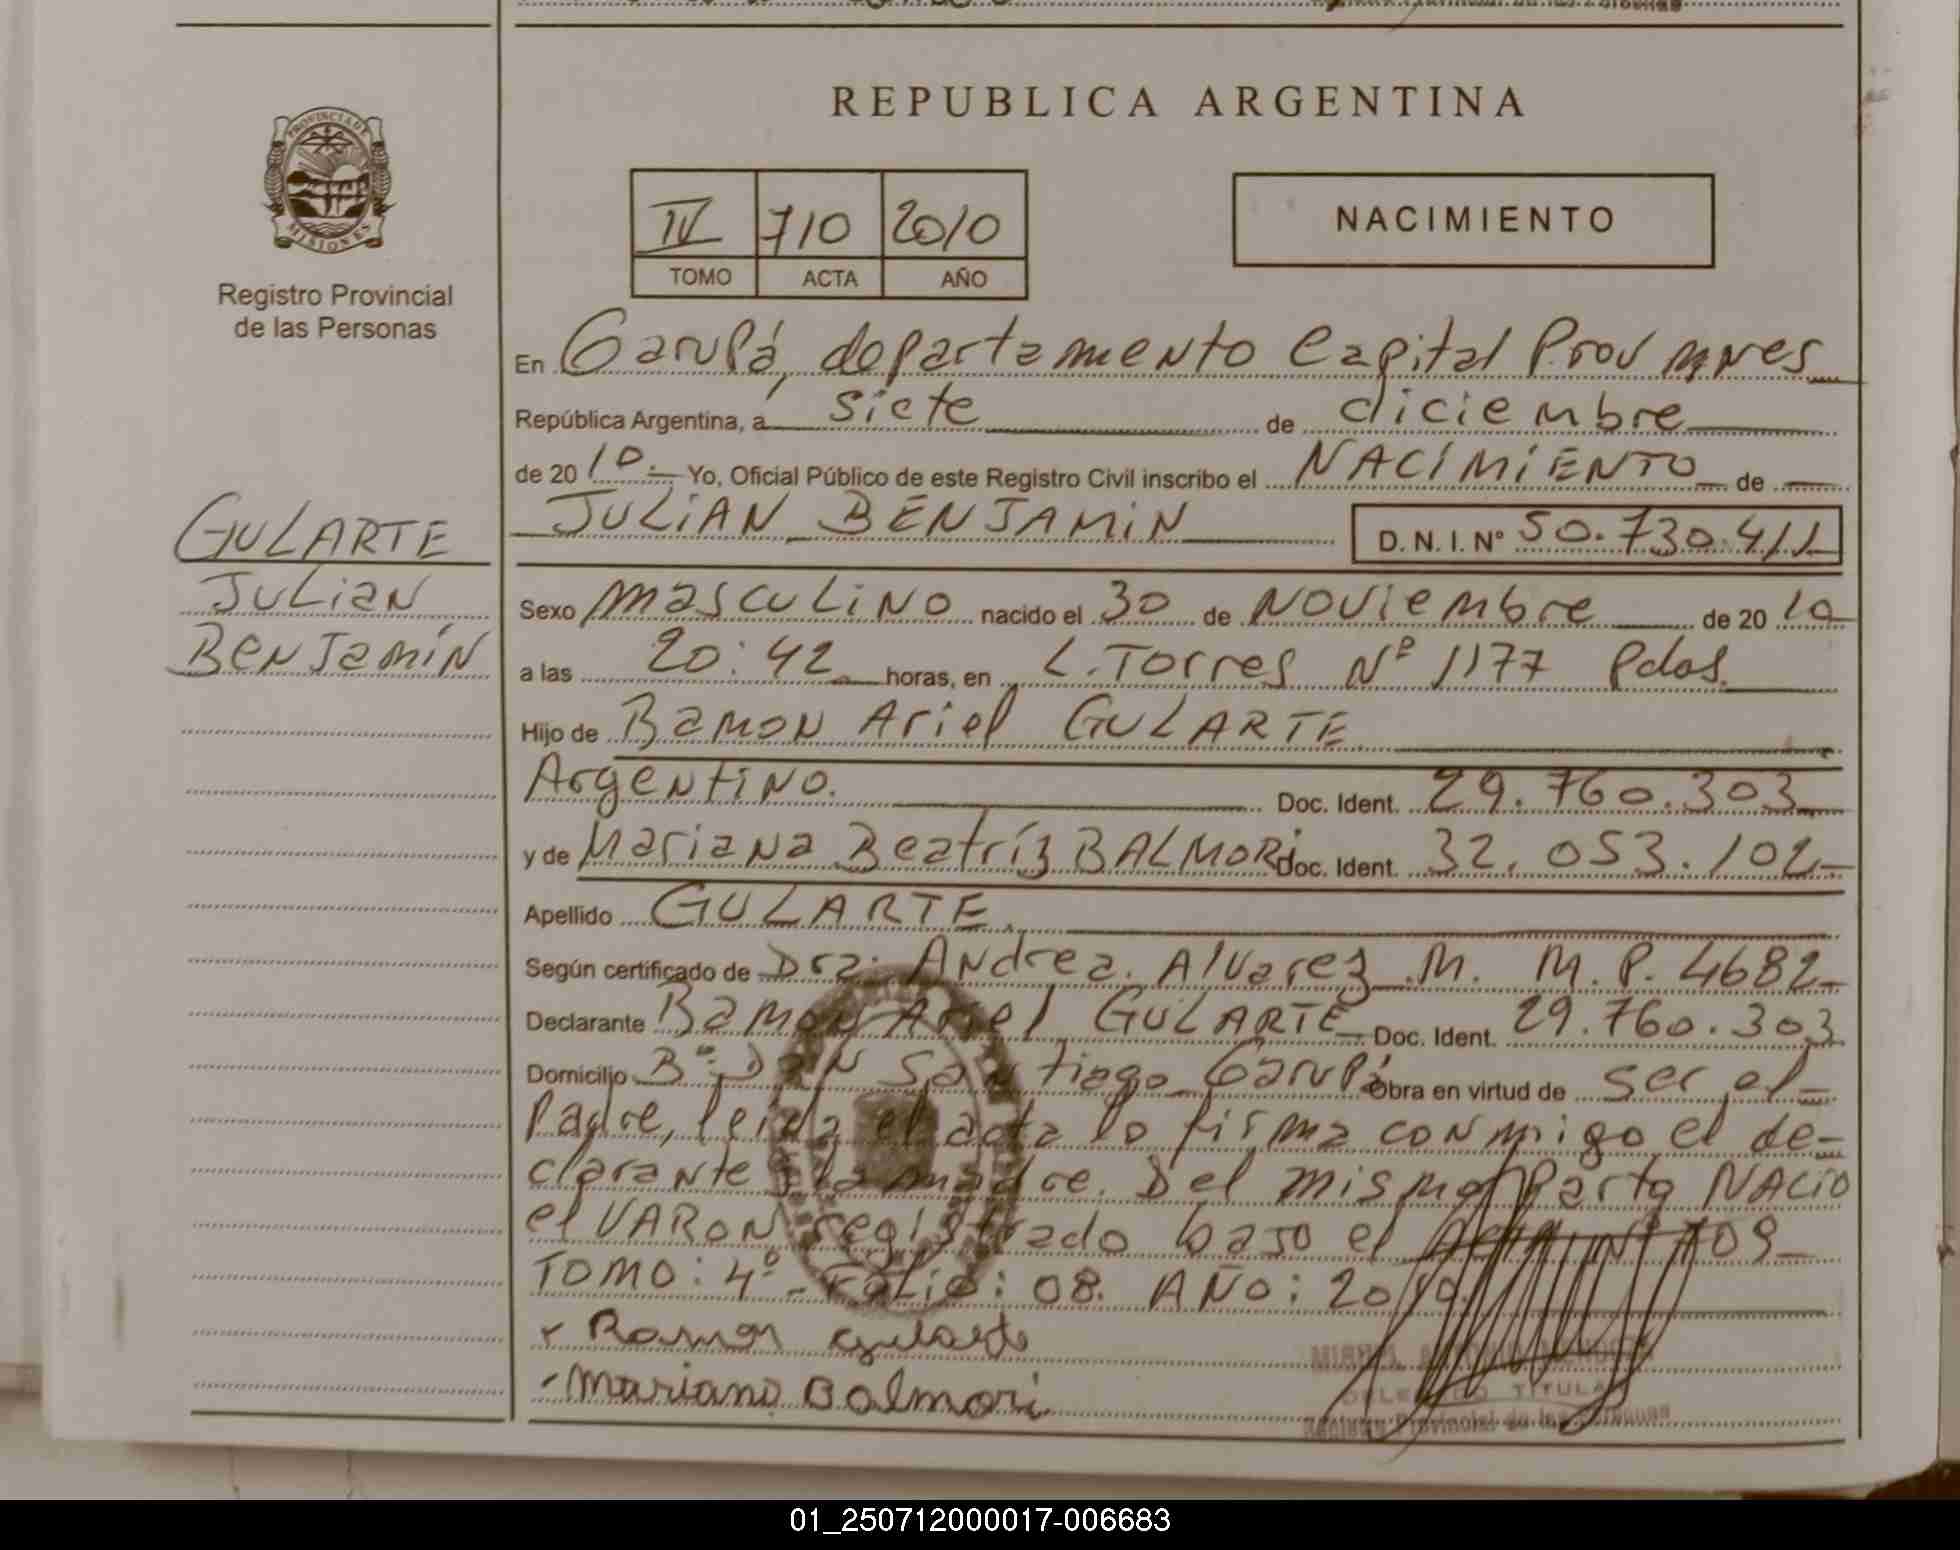 REPUBLICA ARGENTINA
PROVINCIA DE MISIONES
Registro Provincial
de las Personas
IV 710 2010
TOMO ACTA AÑO
NACIMIENTO
En Garupá, departamento Capital Prov Mnes
República Argentina, a siete de diciembre
de 2010. Yo, Oficial Público de este Registro Civil inscribo el NACIMIENTO de
JULIAN BENJAMIN D.N.I. Nº 50.730.411
GULARTE
Julian
Benjamín
Sexo masculino nacido el 30 de Noviembre de 2010
a las 20:42 horas, en L. Torres Nº 1177 Pdas.
Hijo de Ramon Ariel GULARTE
Argentino. Doc. Ident. 29.760.303
y de Mariana Beatríz BALMORI Doc. Ident. 32.053.102
Apellido GULARTE.
Según certificado de Dra: Andrea Alvarez M. M.P. 4682
Declarante Ramon Ariel GULARTE Doc. Ident. 29.760.303
Domicilio Bº Don Santiago Garupá Obra en virtud de ser el
Padre, leida el acta lo firma conmigo el de-
clarante y la madre. Del mismo Parto NACIO
el VARON registrado bajo el Acta Nº 709
TOMO: 4º - Folio: 08. AÑO: 2010.
Ramon Gularte
Mariana Balmori
DELEGADO TITULAR
Registro Provincial de las Personas
01_250712000017-006683